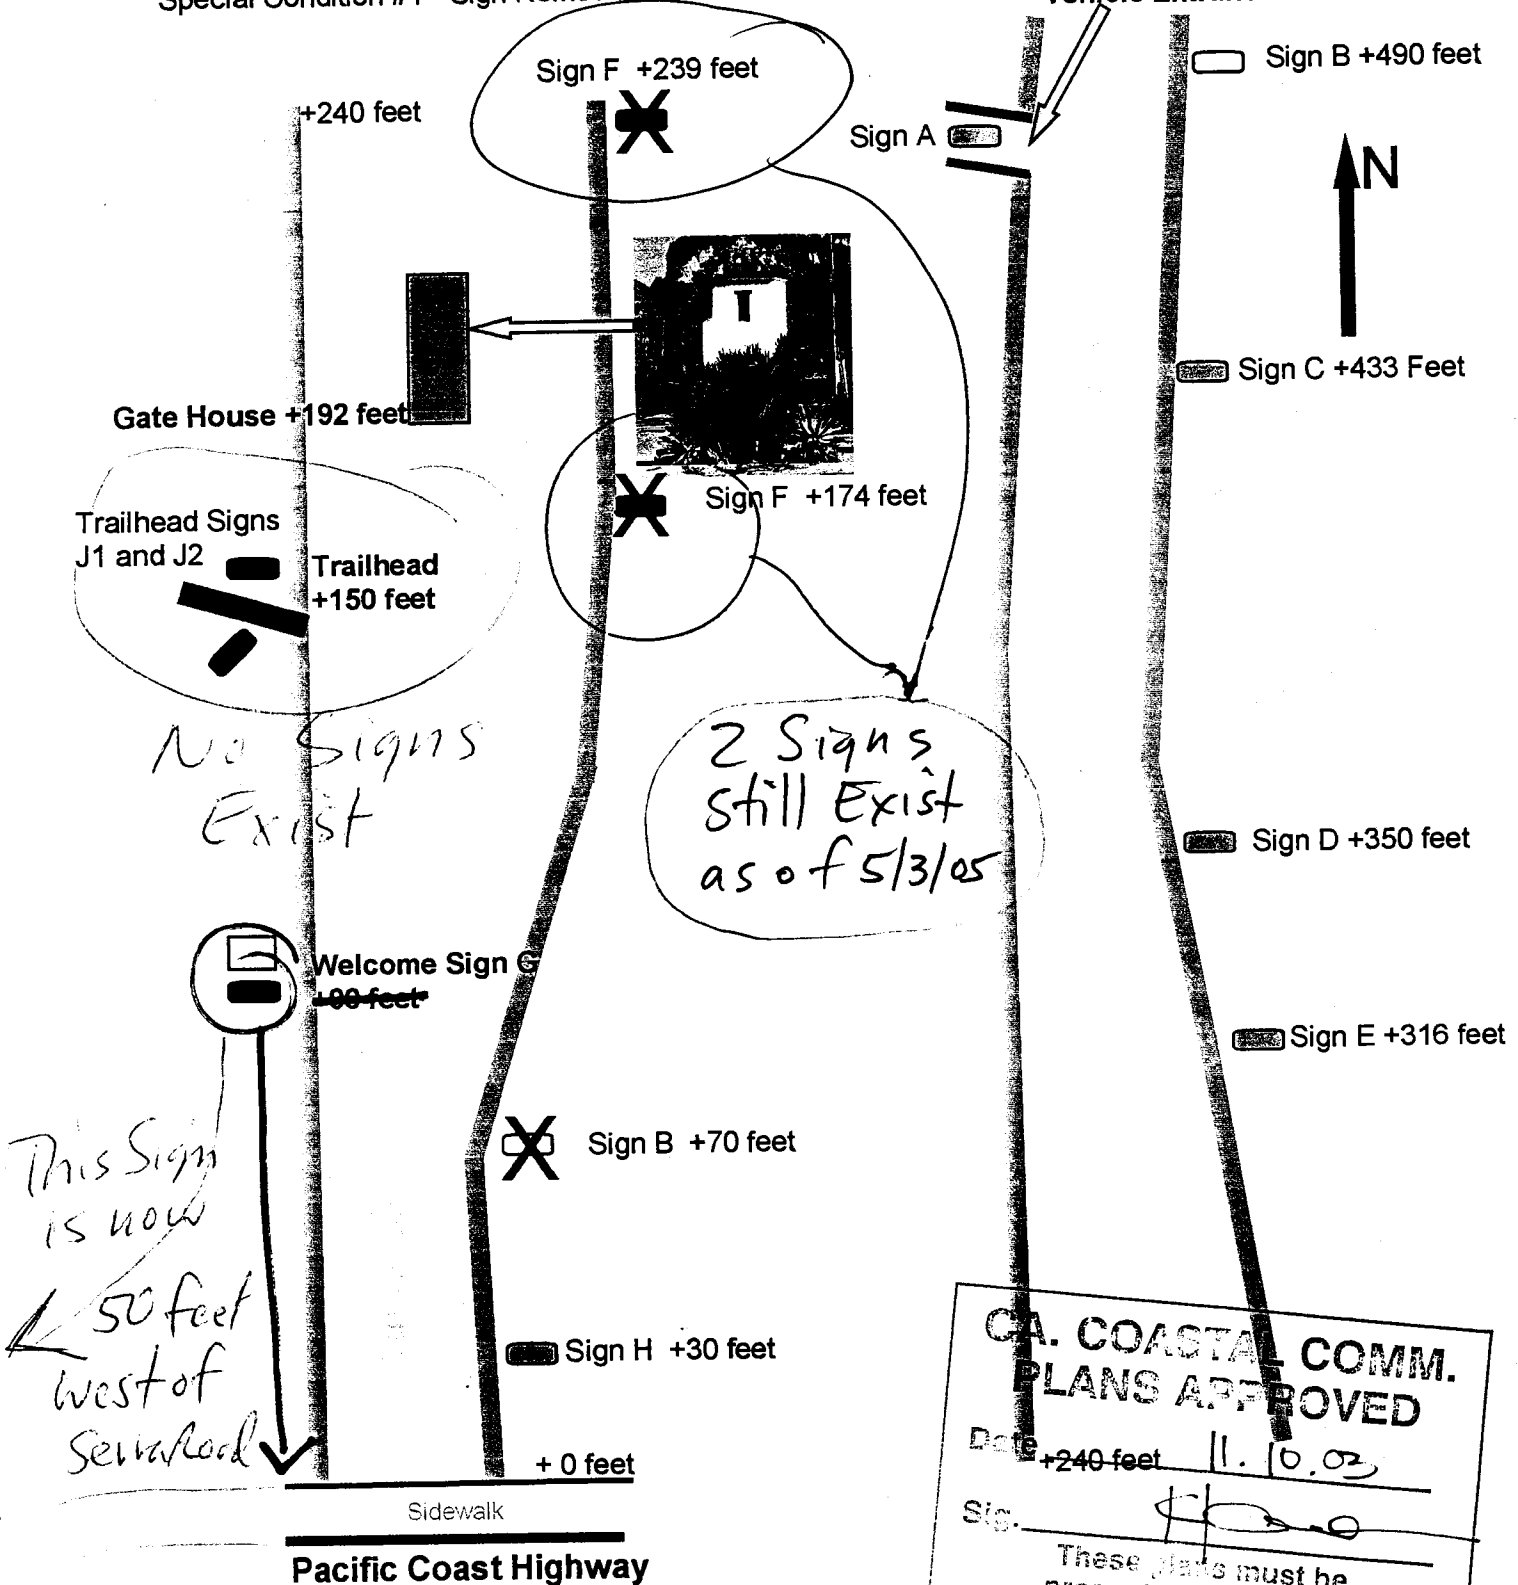 Special Condition #1 Sign
Sign F +239 feet
+240 feet
Sign A
Sign B +490 feet
N
Sign C +433 Feet
Gate House +192 feet
Sign F +174 feet
Trailhead Signs
J1 and J2
Trailhead
+150 feet
No Signs
Exist
2 Signs
still Exist
as of 5/3/05
Sign D +350 feet
Welcome Sign G
+90 feet
Sign E +316 feet
This Sign
is now
50 feet
west of
Serra Road
Sign B +70 feet
Sign H +30 feet
+ 0 feet
Sidewalk
Pacific Coast Highway
CA. COASTAL COMM.
PLANS APPROVED
Date 11.10.03
+240 feet
Sig.
These plans must be